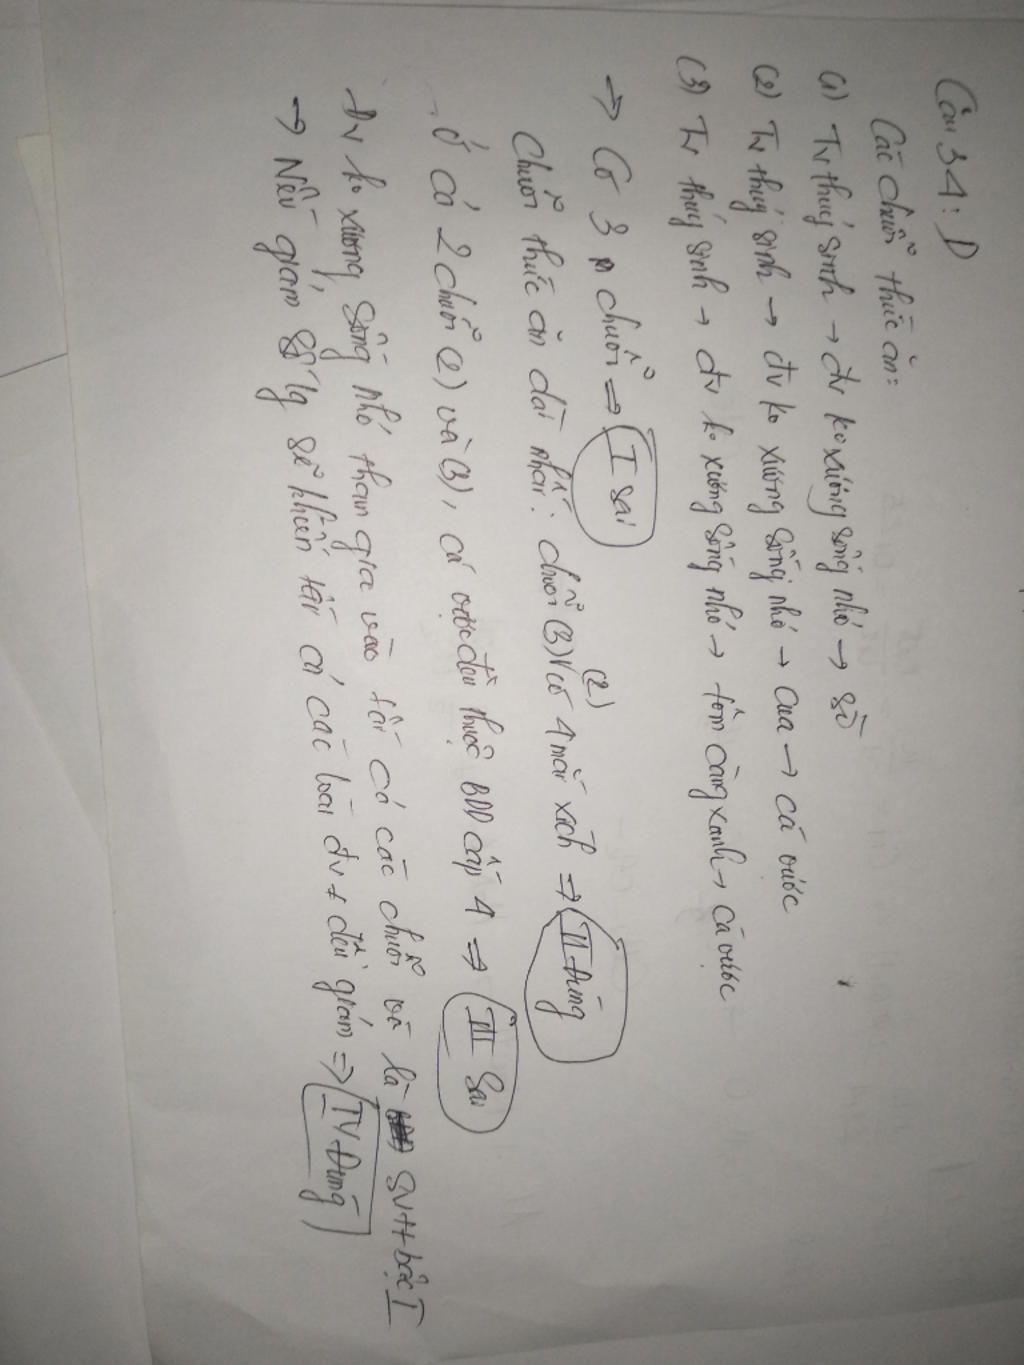 Câu 34: D
Các chuỗi thức ăn:
(1) Tv thuỷ sinh → đv ko xương sống nhỏ → sò
(2) Tv thuỷ sinh → đv ko xương sống nhỏ → cua → cá vược
(3) Tv thuỷ sinh → đv ko xương sống nhỏ → tôm càng xanh → cá vược
→ Có 3 chuỗi ⇒ I sai
Chuỗi thức ăn dài nhất: chuỗi (3) (2) có 4 mắt xích ⇒ II Đúng
Ở cả 2 chuỗi (2) và (3), cá vược đều thuộc BDD cấp 4 ⇒ III Sai
Đv ko xương sống nhỏ tham gia vào tất cả các chuỗi và là SVTT bậc I
→ Nếu giảm số lg sẽ khiến tất cả các loài đv đều giảm ⇒ IV Đúng